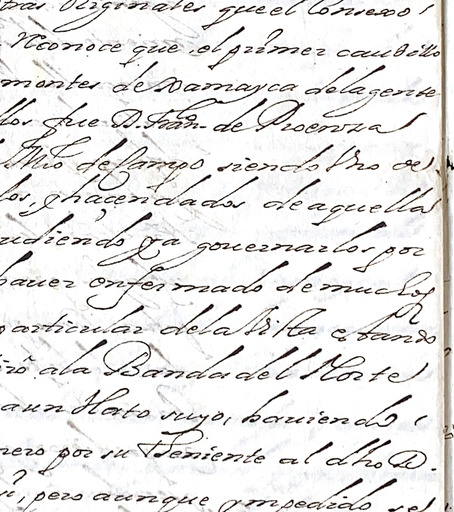 originales que el Consexo
reconoce que el primer caudillo
montes de Xamayca de la gente
llos fue D. Fran. de Proenza
Mro de Campo siendo Vno de
los, y hacendados de aquella
udiendo ya governarlos por
hauer enfermado de muchos
particular de la Vista estando
a la Banda del Norte
a un Hato suyo, hauiendo
nero por su Theniente al dho D.
pero aunque ympedido se